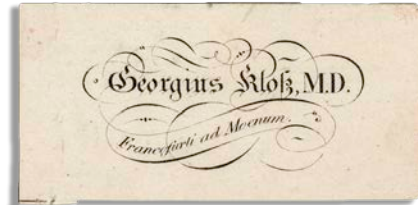 Georgius Kloß, M.D.
Francofurti ad Moenum.